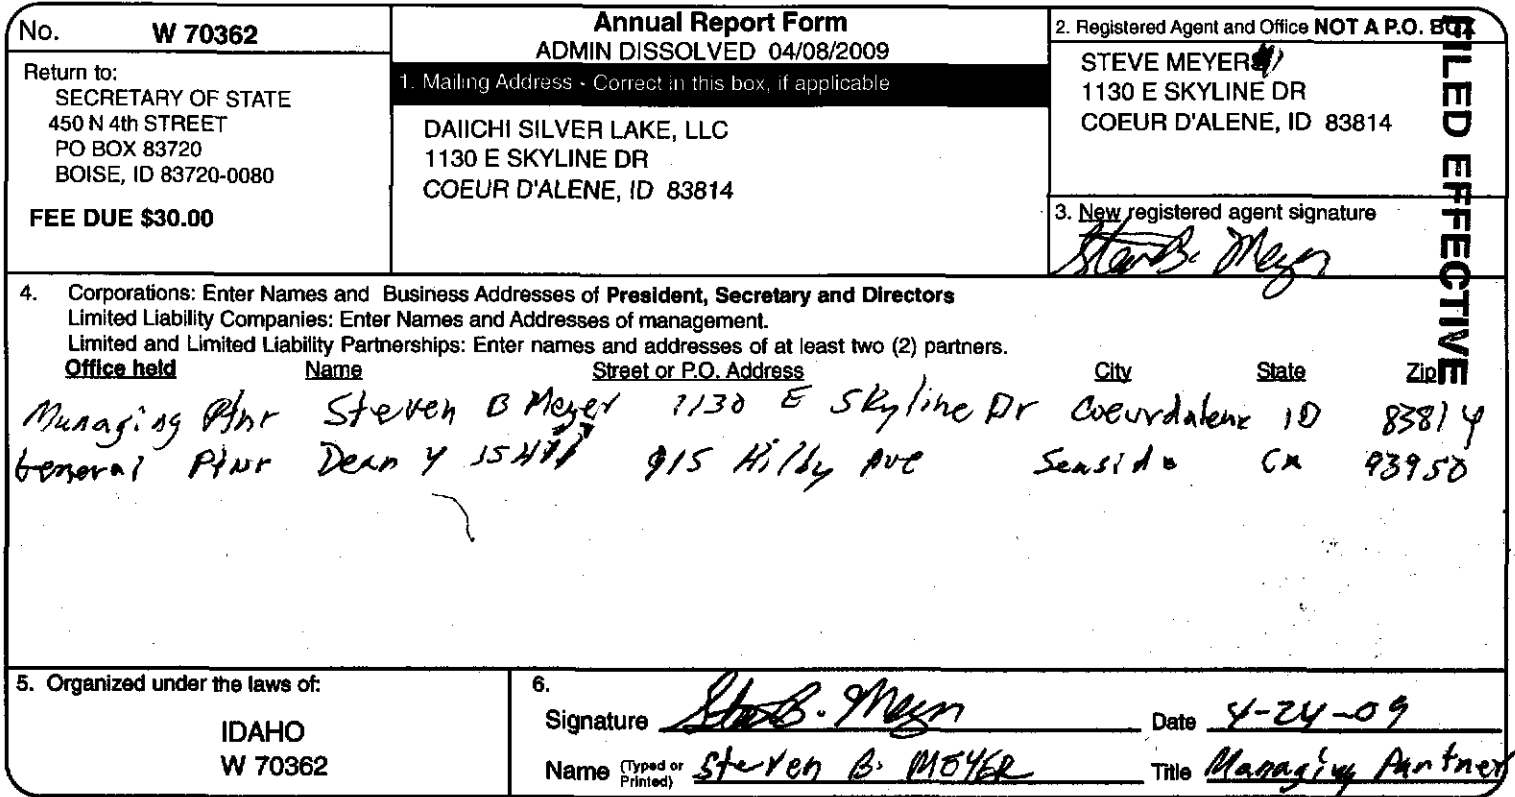 No. W 70362
Return to:
SECRETARY OF STATE
450 N 4th STREET
PO BOX 83720
BOISE, ID 83720-0080
FEE DUE $30.00
Annual Report Form
ADMIN DISSOLVED 04/08/2009
1. Mailing Address - Correct in this box, if applicable
DAIICHI SILVER LAKE, LLC
1130 E SKYLINE DR
COEUR D'ALENE, ID 83814
2. Registered Agent and Office NOT A P.O. BOX
STEVE MEYER
1130 E SKYLINE DR
COEUR D'ALENE, ID 83814
3. New registered agent signature
Steven B. Meyer
FILED EFFECTIVE
4. Corporations: Enter Names and Business Addresses of President, Secretary and Directors
Limited Liability Companies: Enter Names and Addresses of management.
Limited and Limited Liability Partnerships: Enter names and addresses of at least two (2) partners.
Office held Name Street or P.O. Address City State Zip
Managing Ptnr Steven B Meyer 1130 E Skyline Dr Coeurdalene ID 83814
General Ptnr Dean Y 915 Hilby Ave Seaside CA 93950
5. Organized under the laws of:
IDAHO
W 70362
6.
Signature Steven B. Meyer Date 4-24-09
Name (Typed or Printed) Steven B. MEYER Title Managing Partner